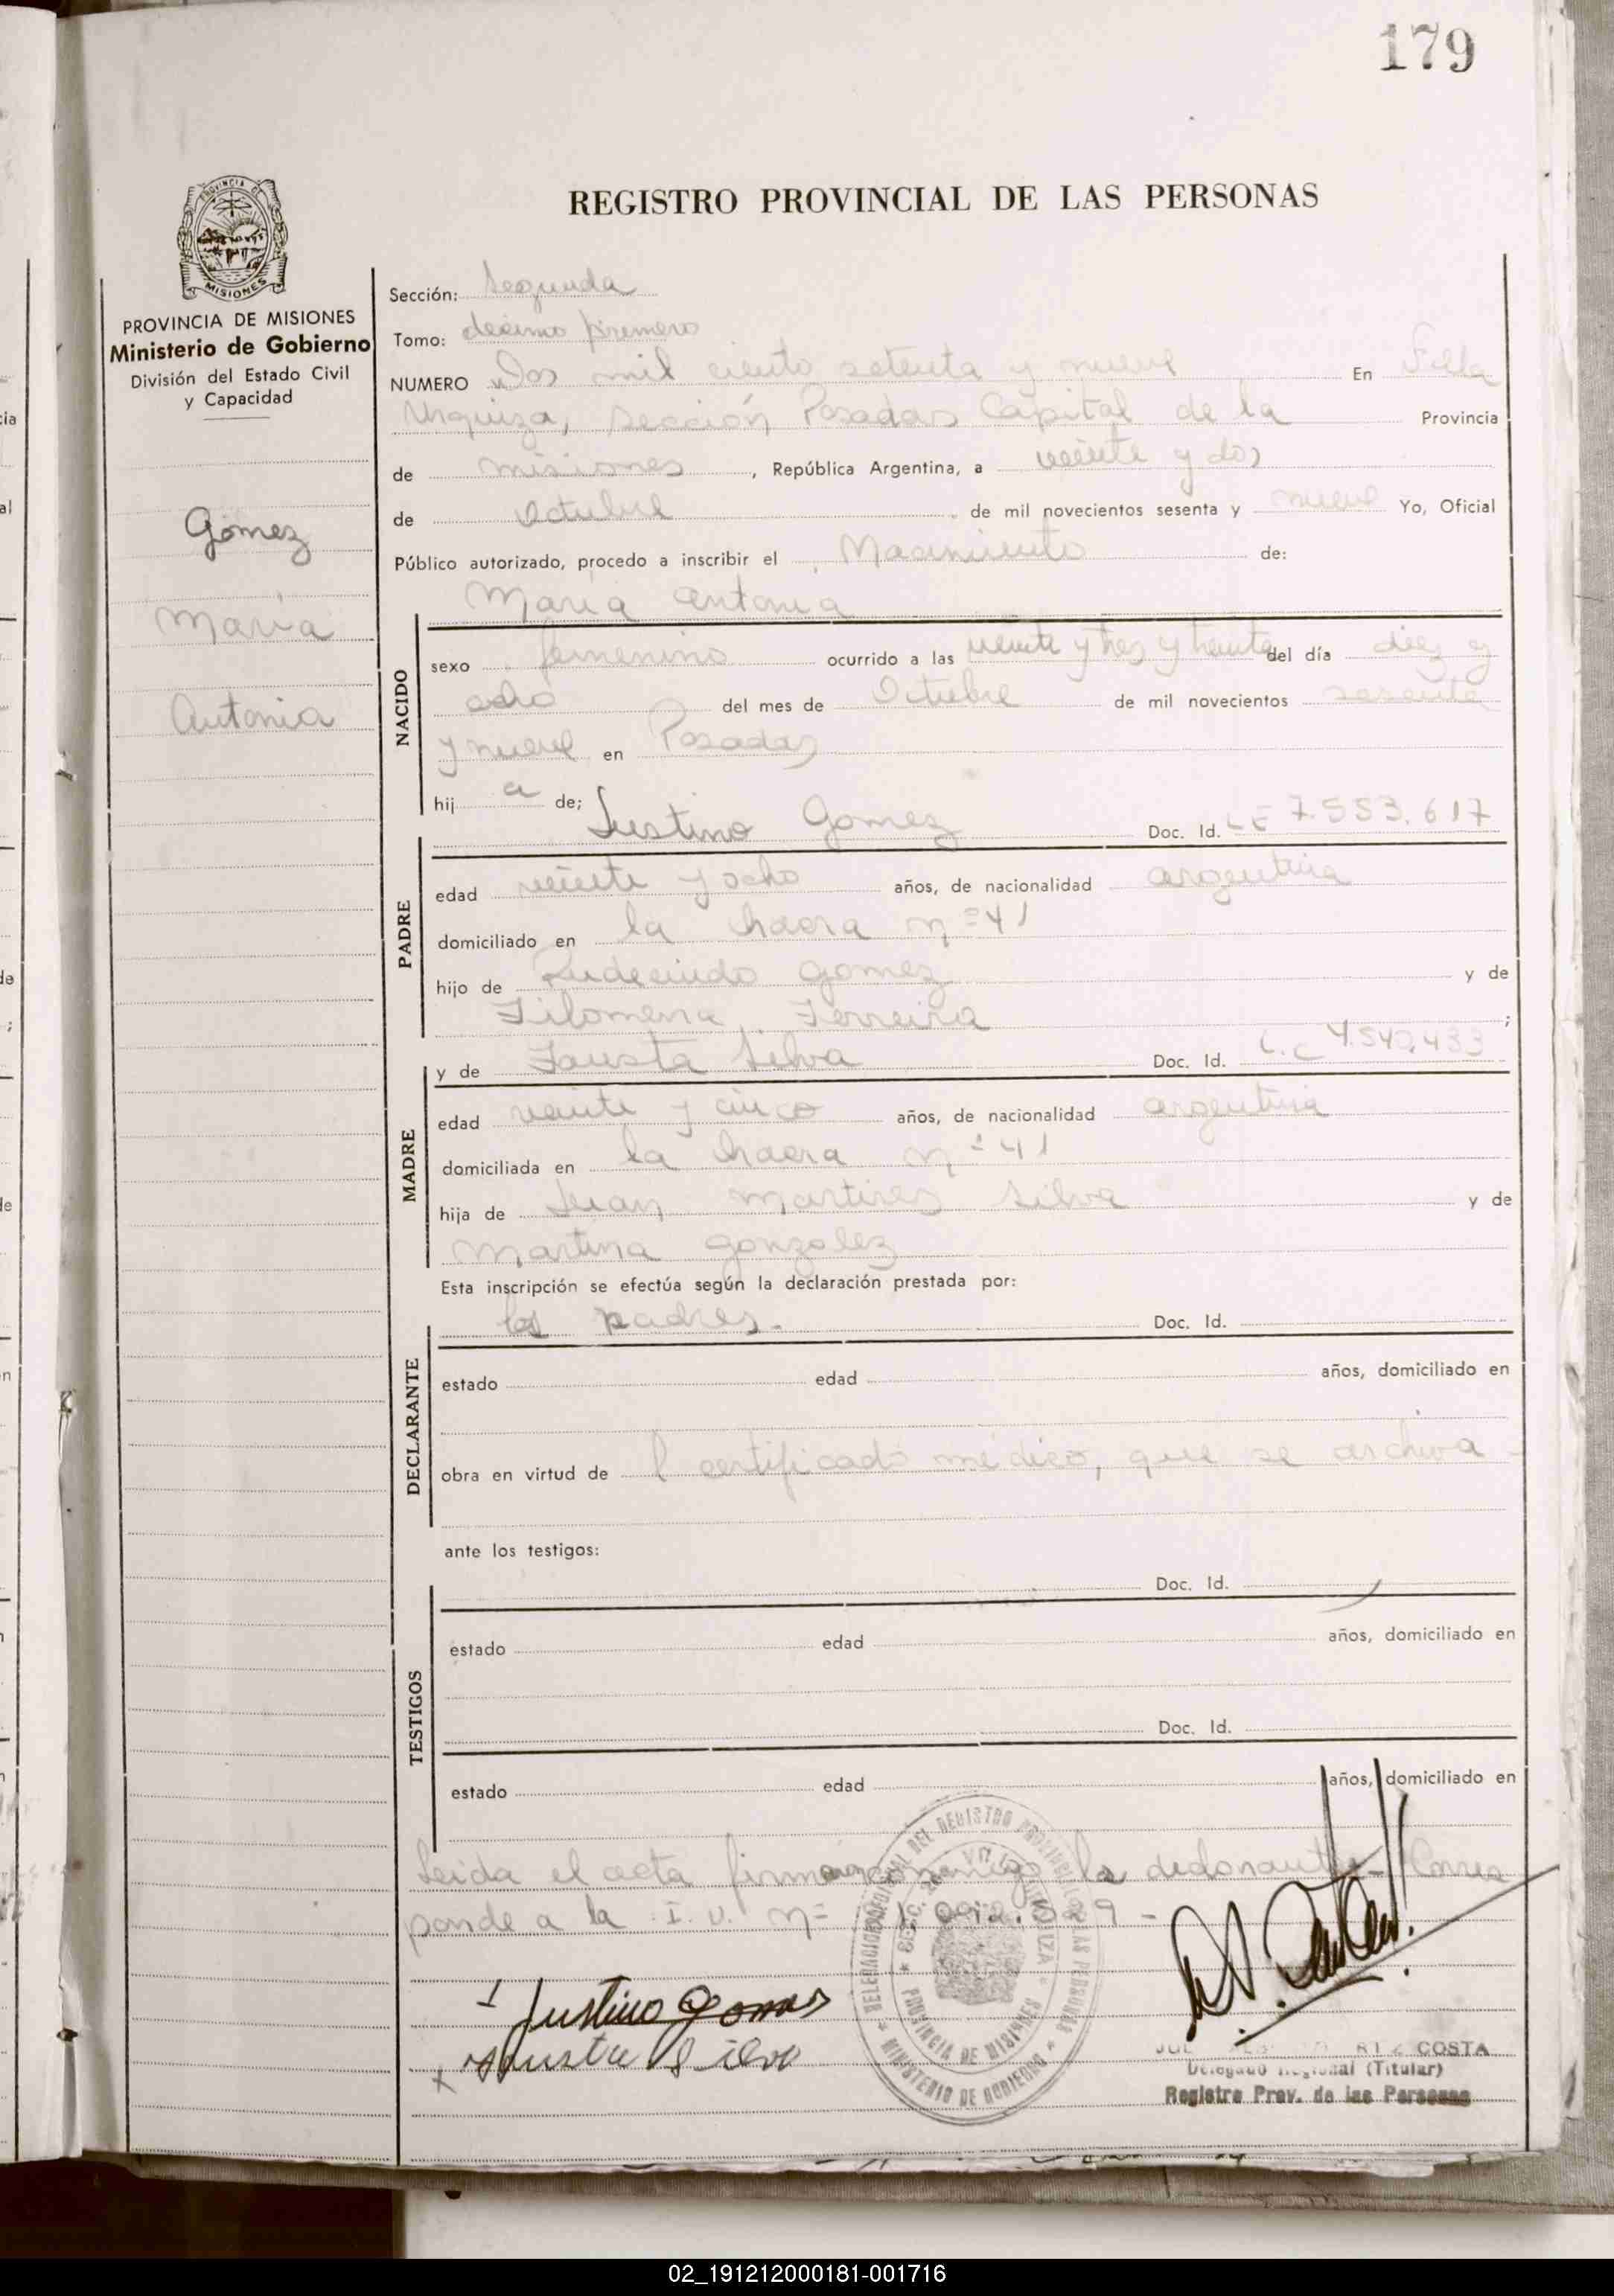 179
PROVINCIA DE
MISIONES
REGISTRO PROVINCIAL DE LAS PERSONAS
PROVINCIA DE MISIONES
Ministerio de Gobierno
División del Estado Civil
y Capacidad
Gómez
María
Antonia
Sección: Segunda
Tomo: décimo primero
NUMERO Dos mil ciento setenta y nueve En Villa
Urquiza, Sección Posadas Capital de la Provincia
de misiones, República Argentina, a veinte y dos
de Octubre de mil novecientos sesenta y nueve Yo, Oficial
Público autorizado, procedo a inscribir el Nacimiento de:
María Antonia
NACIDO
sexo femenino ocurrido a las veinte y tres y treinta del día diez y
ocho del mes de Octubre de mil novecientos sesenta
y nueve en Posadas
hij a de; Justino Gomez Doc. Id. LE 7.553.617
PADRE
edad veinte y ocho años, de nacionalidad argentina
domiciliado en la chacra nº 41
hijo de Rudecindo Gomez y de
Filomena Ferreira ;
y de Fausta Silva Doc. Id. L.C 4.540.433
MADRE
edad veinte y cinco años, de nacionalidad argentina
domiciliada en la chacra nº 41
hija de Juan Martires Silva y de
Martina Gonzalez
Esta inscripción se efectúa según la declaración prestada por:
los padres. Doc. Id.
DECLARANTE
estado edad años, domiciliado en
obra en virtud de l certificado médico, que se archiva -
ante los testigos:
Doc. Id.
TESTIGOS
estado edad años, domiciliado en
Doc. Id.
estado edad años, domiciliado en
Leida el acta firman conmigo la declarante - Corres
ponde a la I. U. nº
Justino Gomes
Fausta Silva
COSTA
Delegado Regional (Titular)
Registro Prov. de las Personas
PROVINCIA DE MISIONES
MINISTERIO DE GOBIERNO
02_191212000181-001716